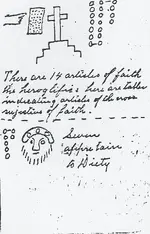 There are 14 articles of faith
the heroglifics here are table
indicating articles of the
of faith.
Seven
appertain
to Diety